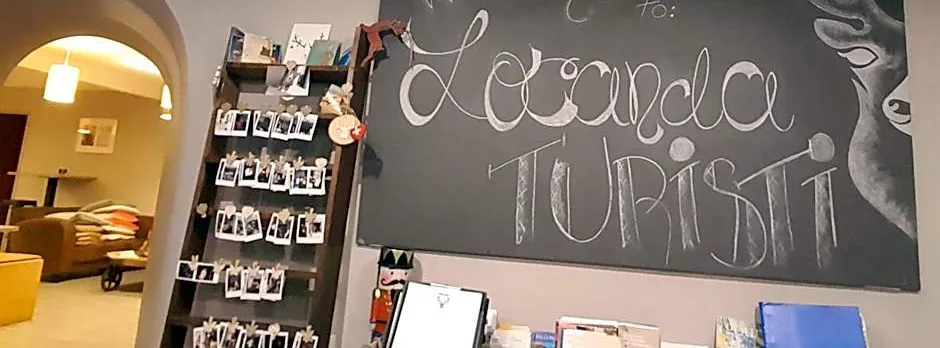 to:
Locanda
TURiSTi